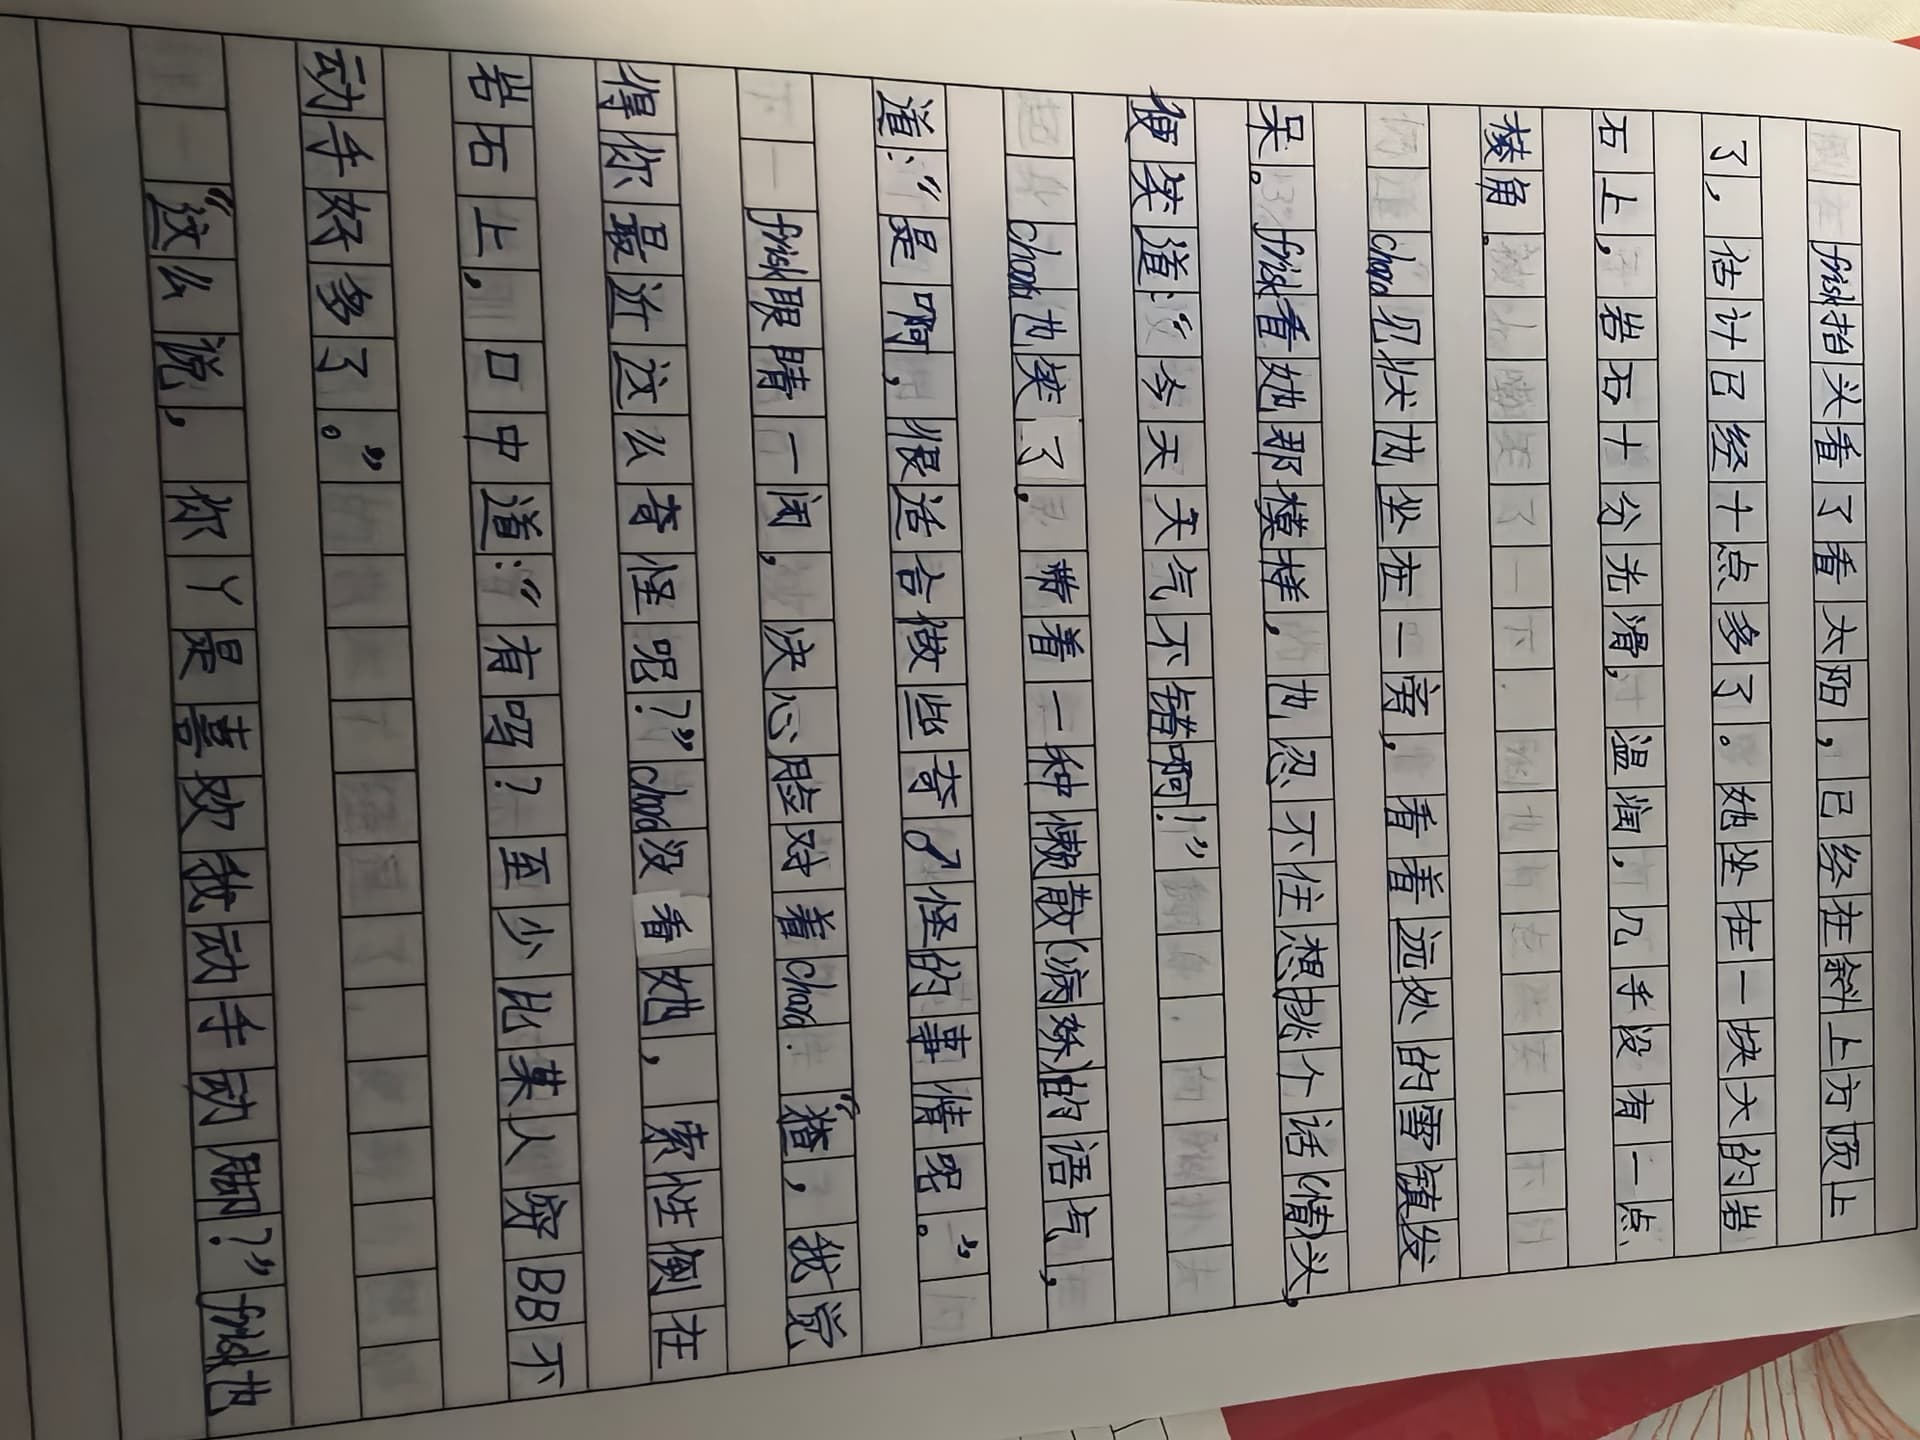 frisk抬头看了看太阳，已经在斜上方顶上
了，估计已经十点多了。她坐在一块大的岩
石上，岩石十分光滑，温润，几乎没有一点
棱角。
chara见状也坐在一旁，看着远处的雪镇发
呆。frisk看她那模样，也忍不住想挑个话(情)头，
便笑道：“今天天气不错啊！”
chara也笑了，带着一种懒散(病娇)的语气，
道：“是啊，很适合做些奇♂怪的事情呢。”
frisk眼睛一闭，决心脸对着chara：“猹，我觉
得你最近这么奇怪呢？”chara没看她，索性倒在
岩石上，口中道：“有吗？至少比某人穷BB不
动手好多了。”
“这么说，你丫是喜欢我动手动脚？”frisk也